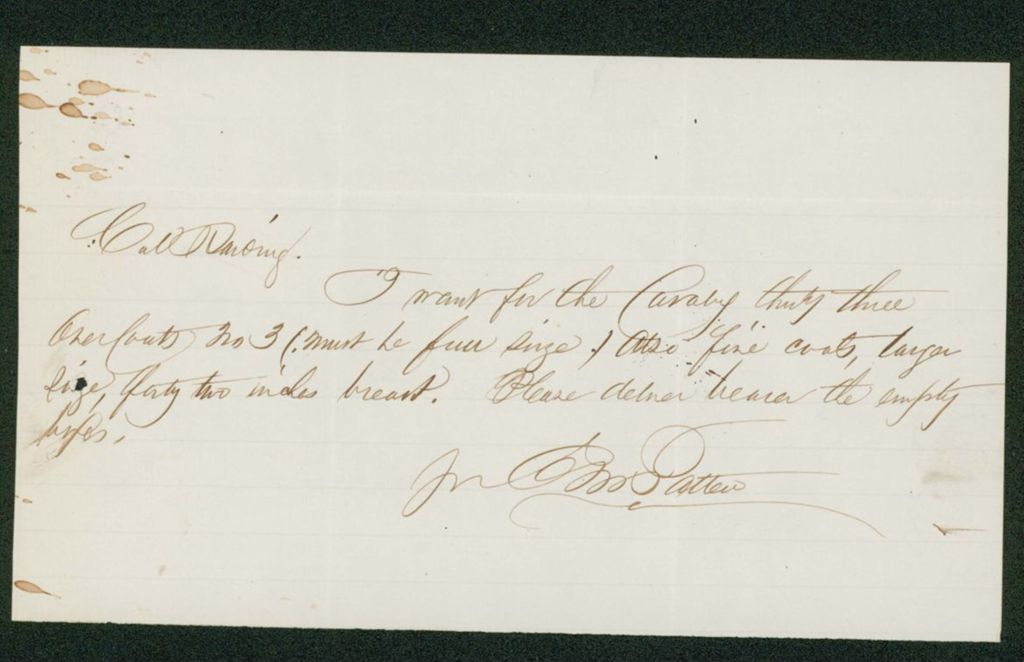 Coll Waring.
I want for the Cavalry thirty three
Over Coats No 3 (: must be full size :) Also five coats, larger
size, forty two inches breast. Please deliver bearer the empty
boxes.
for Patten